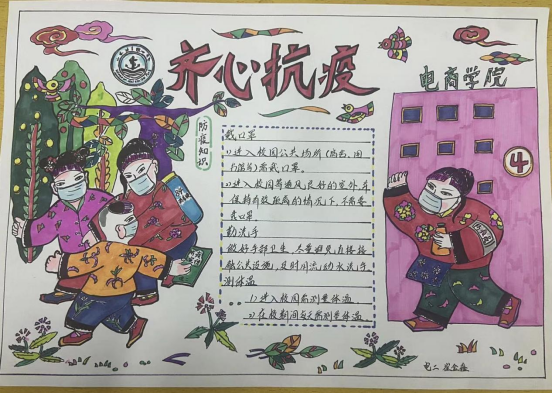 齐心抗疫
电商学院
4
防疫知识
戴口罩
1)进入校园公共场所(商店、图
书馆等)需戴口罩。
2)进入校园普通风良好的室外并
保持有效距离的情况下,不需要
戴口罩
勤洗手
做好手部卫生,尽量避免直接接
触公共设施,及时用流动水洗手
测体温
1)进入校园需测量体温
2)在校期间每天需测量体温
电二